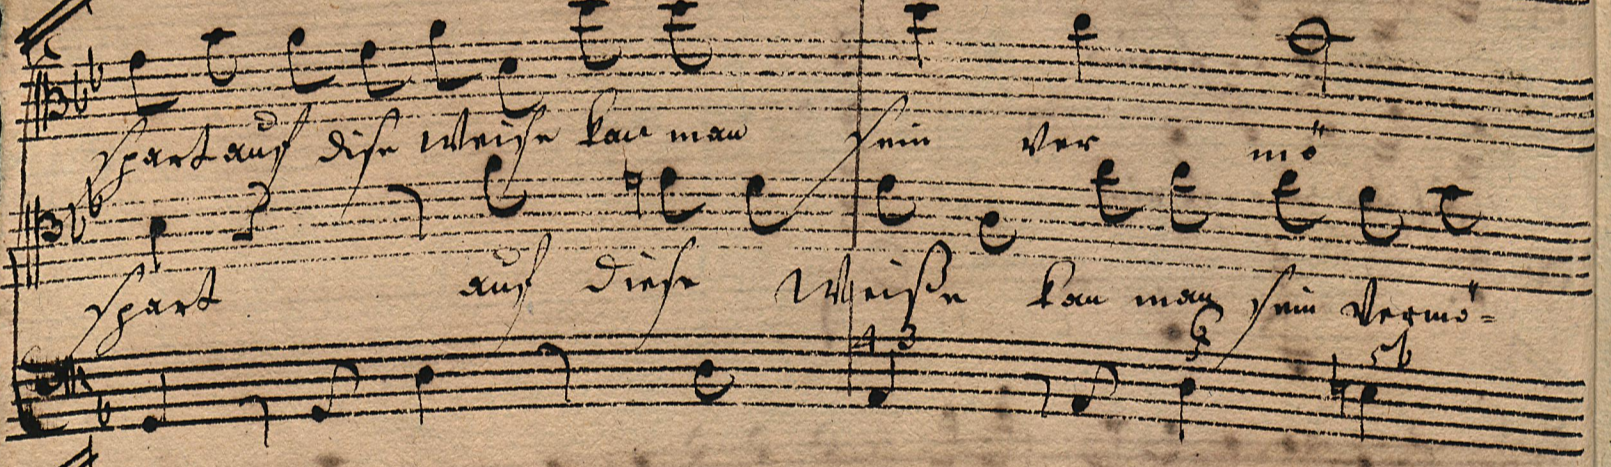 spart auf dise Weise kan man sein ver mö
spart auf diese Weiße kan man sein Vermö=
4 3 6 5 5b